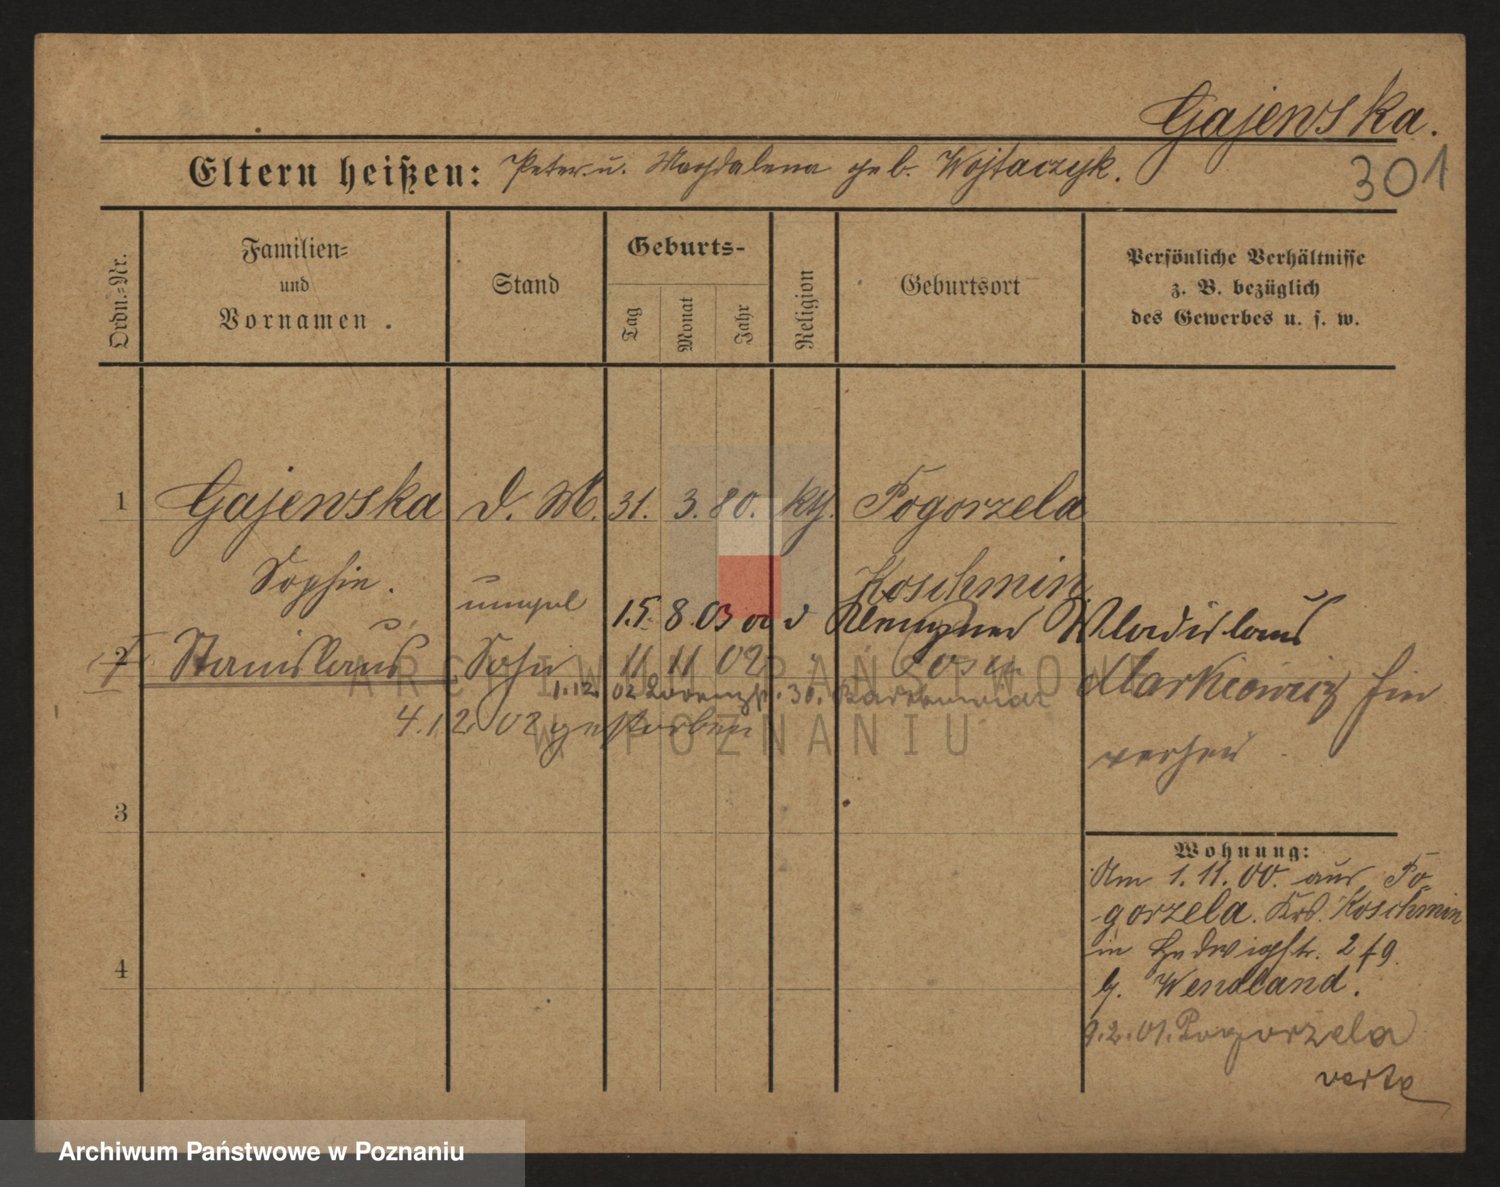 Gajewska.
301
Eltern heißen: Peter u. Magdalena geb. Wojtaczyk.
Ordn.=Nr.
Familien=
und
Vornamen.
Stand
Geburts-
Tag
Monat
Jahr
Religion
Geburtsort
Persönliche Verhältnisse
z. B. bezüglich
des Gewerbes u. s. w.
1 Gajewska D. M. 31. 3. 80. kth. Pogorzela
Sophie. Koschmin
15. 8. 03 Wladislaus
2 Stanislaus Sohn 11 11 02 Posen
Markiewicz
1.12. 02 30.
4.12 02 gestorben
3
4
Wohnung:
Am 1.11.00. aus Po
gorzela. Krs. Koschmin
in Hedwigstr. 2
b. Wendland.
9.2.01. Pogorzela
verte
ARCHIWUM PAŃSTWOWE
W POZNANIU
Archiwum Państwowe w Poznaniu